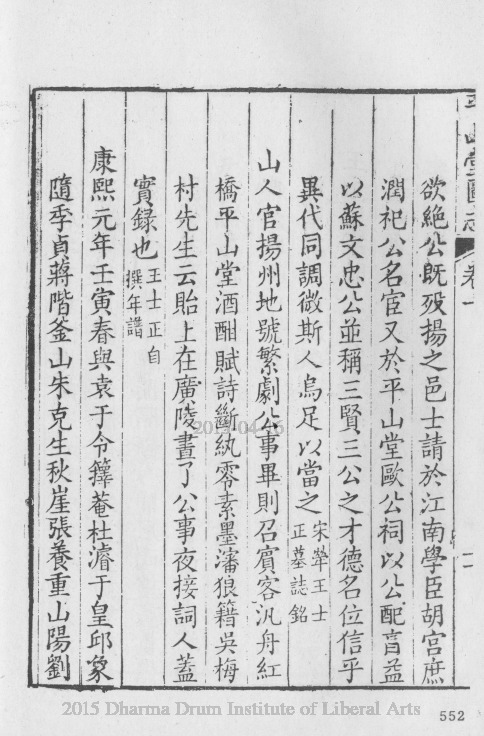 平山堂圖志 卷一 二
欲絶公既歿揚之邑士請於江南學臣胡宮庶
潤祀公名宦又於平山堂歐公祠以公配亯益
以蘇文忠公並稱三賢三公之才德名位信乎
異代同調微斯人烏足以當之宋犖王士正墓誌銘
山人官揚州地號繁劇公事畢則召賓客汎舟紅
橋平山堂酒酣賦詩斷紈零素墨瀋狼籍吳梅
村先生云貽上在廣陵晝了公事夜接詞人蓋
實録也王士正自撰年譜
康熙元年壬寅春與袁于令籜菴杜濬于皇邱象
隨季貞蔣階釜山朱克生秋崖張養重山陽劉
2015 Dharma Drum Institute of Liberal Arts
552